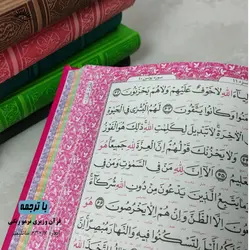 لَا خَوْفٌ عَلَيْهِمْ وَلَا هُمْ يَحْزَنُونَ
وَكَانُوا يَتَّقُونَ لَهُمُ الْبُشْرَىٰ فِي الْحَيَوٰةِ
الْآخِرَةِ لَا تَبْدِيلَ لِكَلِمَاتِ اللّٰهِ ذَٰلِكَ هُوَ الْفَوْزُ
وَلَا يَحْزُنْكَ قَوْلُهُمْ إِنَّ الْعِزَّةَ لِلّٰهِ جَمِيعًا هُوَ
أَلَا إِنَّ لِلّٰهِ مَنْ فِي السَّمٰوَاتِ وَمَنْ فِي
يَتَّبِعُ الَّذِينَ يَدْعُونَ مِنْ دُونِ اللّٰهِ شُرَكَاءَ
إِلَّا الظَّنَّ وَإِنْ هُمْ إِلَّا يَخْرُصُونَ
لِتَسْكُنُوا فِيهِ وَالنَّهَارَ مُبْصِرًا إِنَّ
با ترجمه
قرآن وزیری ترمو رنگی